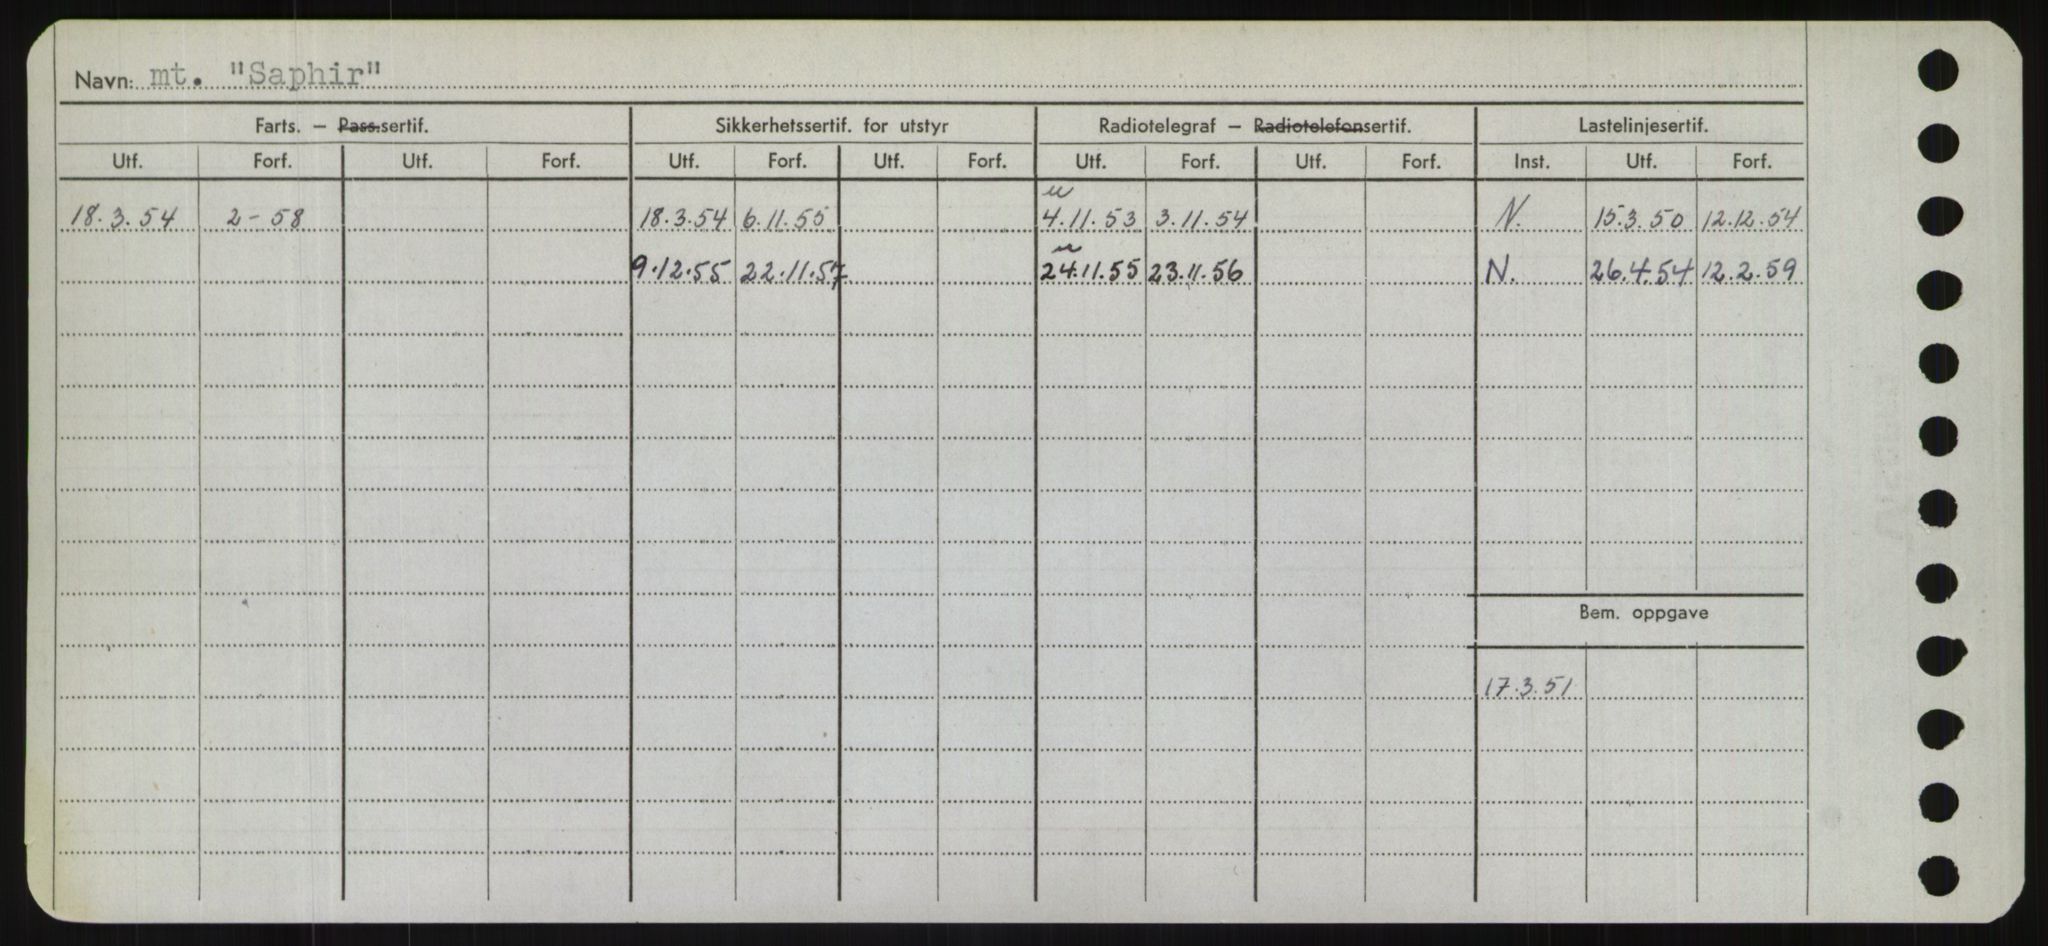 Navn: mt. "Saphir"
Farts. – Pass.sertif. Sikkerhetssertif. for utstyr Radiotelegraf – Radiotelefonsertif. Lastelinjesertif.
Utf. Forf. Utf. Forf. Utf. Forf. Utf. Forf. Utf. Forf. Utf. Forf. Inst. Utf. Forf.
u
18.3.54 2-58 18.3.54 6.11.55 4.11.53 3.11.54 N. 15.3.50 12.12.54
u
9.12.55 22.11.57 24.11.55 23.11.56 N. 26.4.54 12.2.59
Bem. oppgave
17.3.51